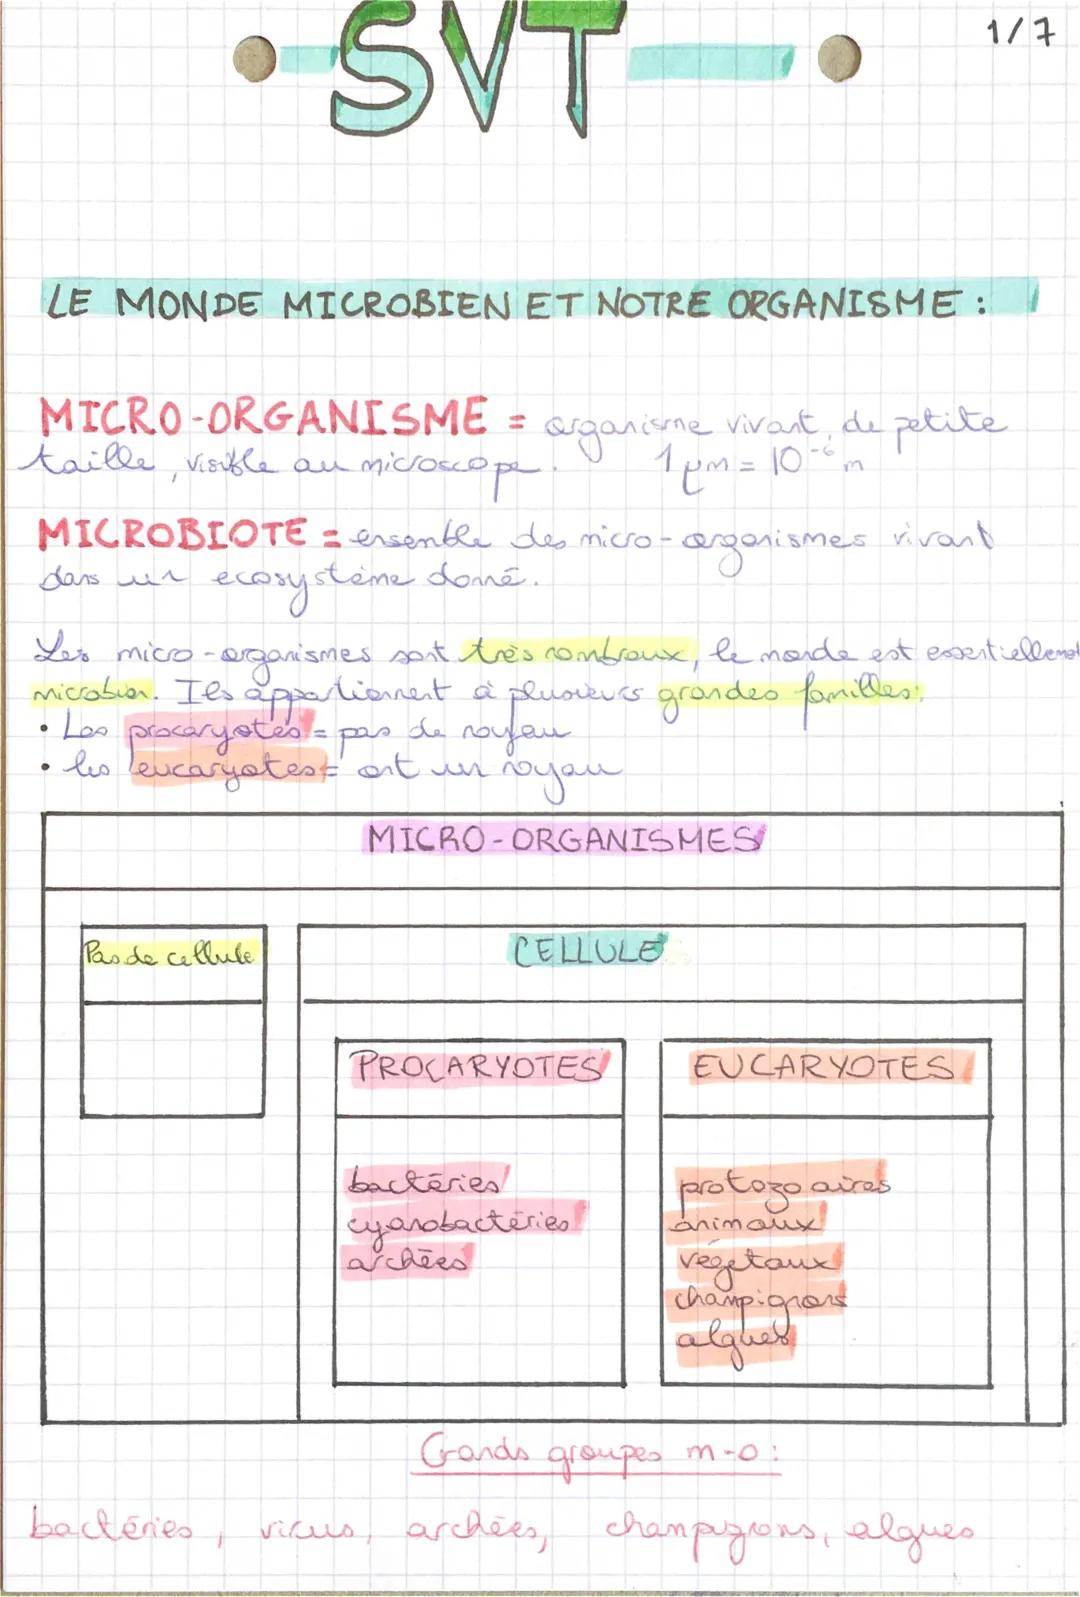 SVT
1/7
LE MONDE MICROBIEN ET NOTRE ORGANISME :
MICRO-ORGANISME = organisme vivant, de petite
taille, visible au microscope. 1 µm = 10⁻⁶ m
MICROBIOTE = ensemble des micro-organismes vivant
dans un ecosystème donné.
Les micro-organismes sont très nombreux, le monde est essentiellement
microbien. Ils appartiennent à plusieurs grandes familles:
• Les procaryotes = pas de noyau
• les eucaryotes = ont un noyau
MICRO-ORGANISMES
Pas de cellule
CELLULE
PROCARYOTES
EUCARYOTES
bactéries
cyanobactéries
archées
protozoaires
animaux
végétaux
champignons
algues
Grands groupes m-o :
bactéries, virus, archées, champignons, algues